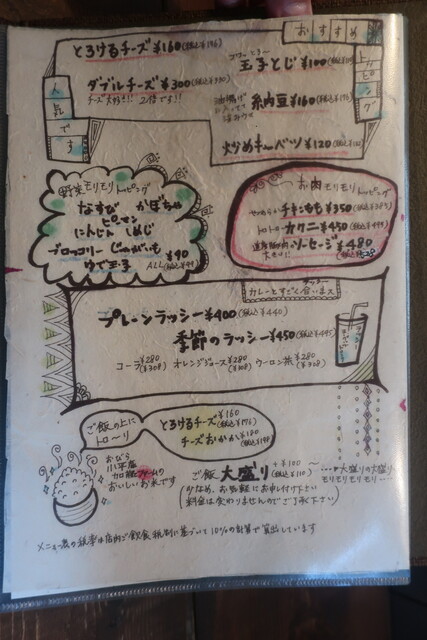 おすすめ
トッピング
人気です
とろけるチーズ ¥160(税込¥176)
ダブルチーズ ¥300(税込¥330)
チーズ大好き!! 2倍です!!
玉子とじ ¥100
油揚げ
糸内豆 ¥160
炒めキャベツ ¥120
野菜モリモリトッピング
なすび かぼちゃ
ピーマン
にんじん しめじ
ブロッコリー じゃがいも
ゆで玉子
¥90
ALL(税込¥99)
お肉モリモリトッピング
やわらかい チキンもも ¥350(税込¥385)
トロトロ カクニ ¥450(税込¥495)
ソーセージ ¥480
(税込¥528)
カレーとすごく合いまス
プレーンラッシー ¥400(税込¥440)
季節のラッシー ¥450(税込¥495)
コーラ ¥280(¥308) オレンジジュース ¥280(¥308) ウーロン茶 ¥280(¥308)
ご飯の上に
トローリ
とろけるチーズ ¥160(税込¥176)
チーズおかか ¥180(税込¥198)
おいしいお米です
ご飯 大盛り +¥100〜(税込¥110)
大盛りの大盛り
モリモリモリモリ…
(少なめ、お気軽にお申し付け下さい
料金は変わりませんのでご了承下さい)
メニュー表の税率は店内ご飲食税制に基づいて10%の計算で算出しています